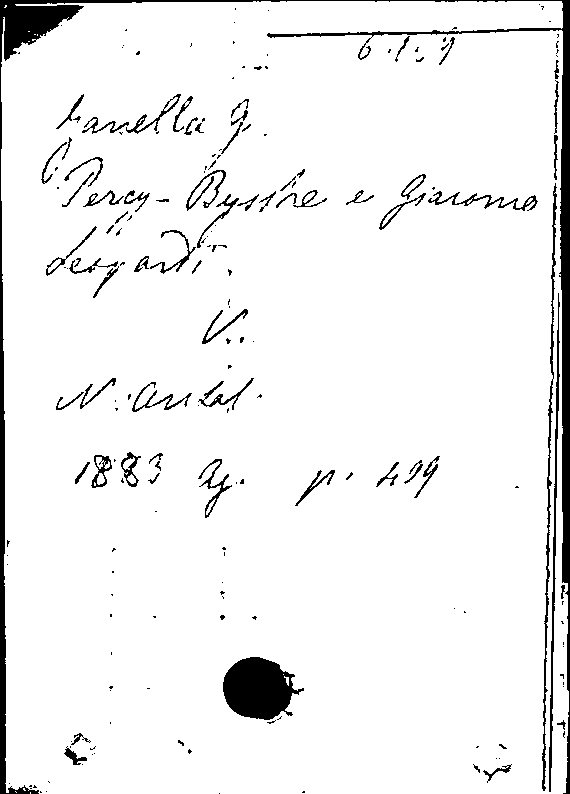 6.1.9
Zanella G.
Percy-Bysshe e Giacomo
Leopardi.
V.
N. Antol.
1883 Ag. p. 499